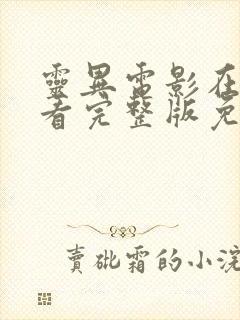 靈異電影在
看完整版免
賣砒霜的小浣